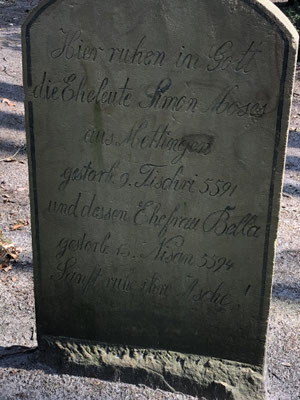 Hier ruhen in Gott
die Eheleute Simon Moses
aus Mettingen
gestorb. 9. Tischri 5591
und dessen Ehefrau Bella
gestorb. 15. Nisan 5594
Sanft ruh ihre Asche!